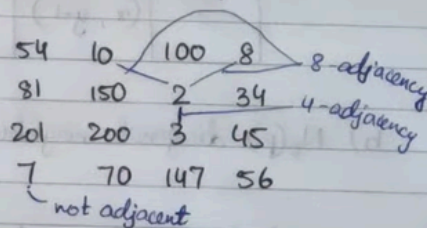 54 10 100 8 8-adjacency
81 150 2 34 4-adjacency
201 200 3 45
7 70 147 56
not adjacent